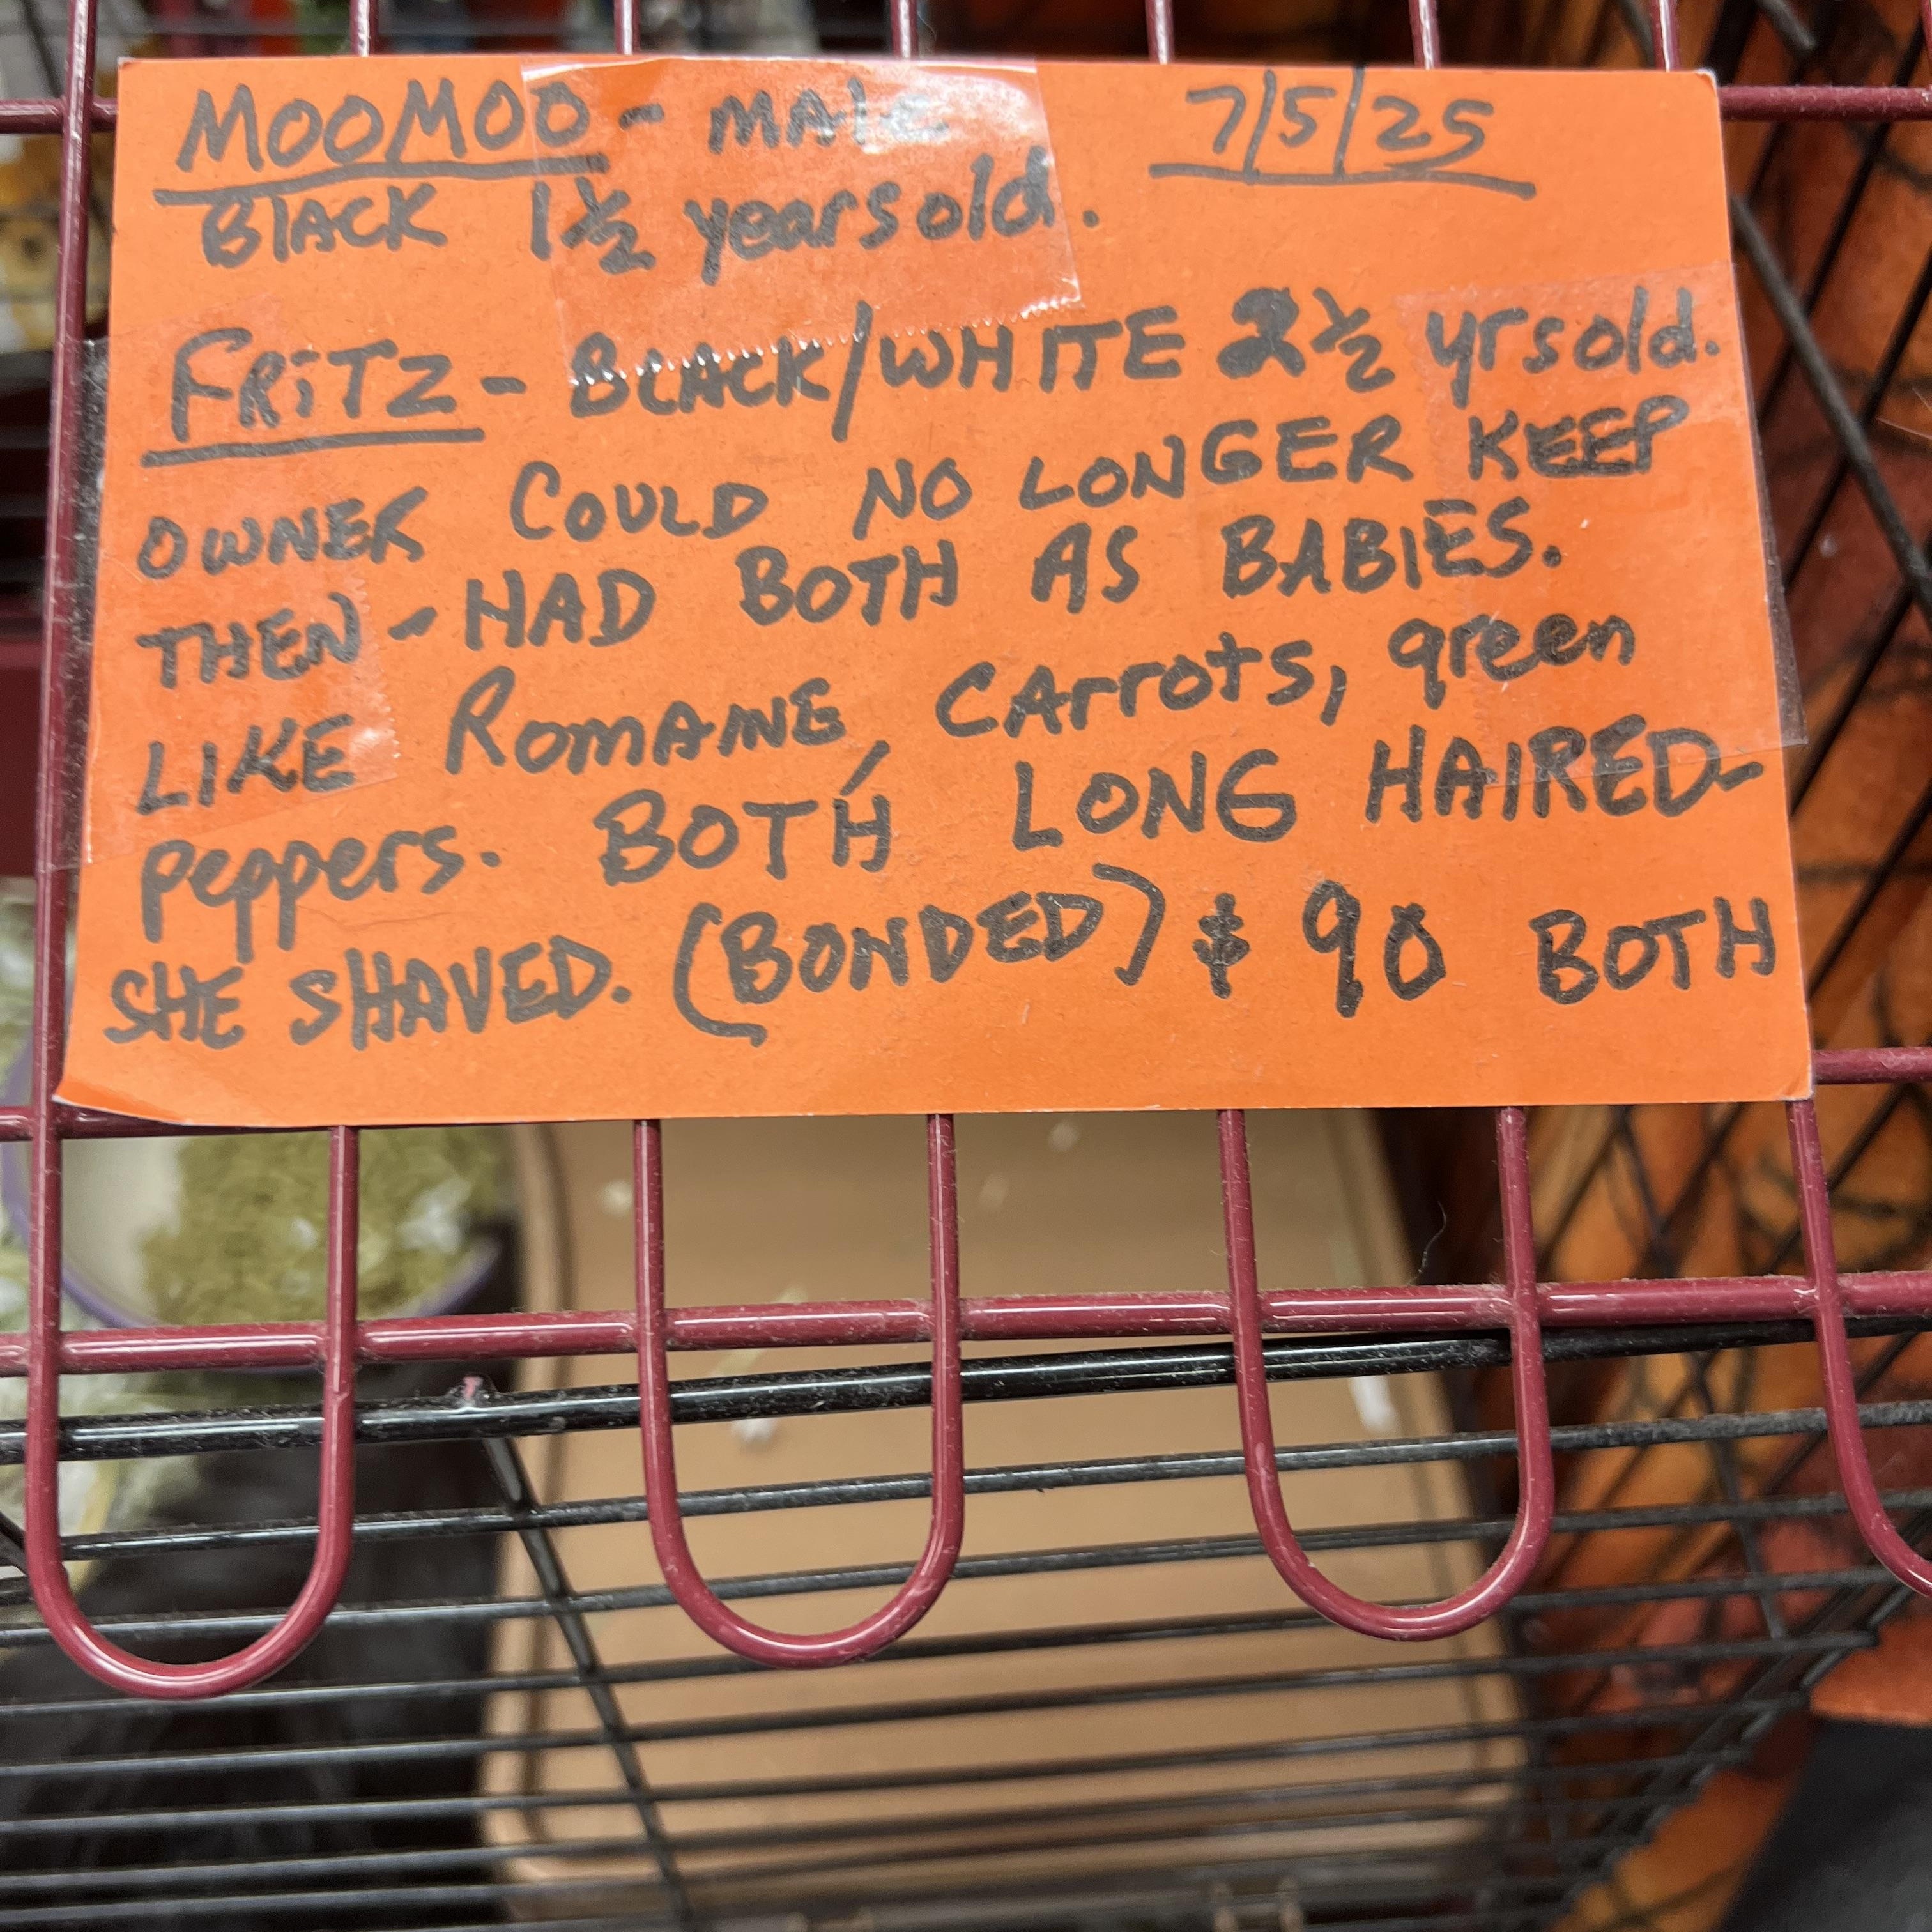 MOOMOO - MALE 7/5/25
BLACK 1 1/2 years old.
FRiTZ - BLACK/WHITE 2 1/2 yrs old.
OWNER COULD NO LONGER KEEP
THEN - HAD BOTH AS BABIES.
LIKE ROMAINE, CArrots, green
Peppers. BOTH LONG HAIRED-
SHE SHAVED. (BONDED) $90 BOTH